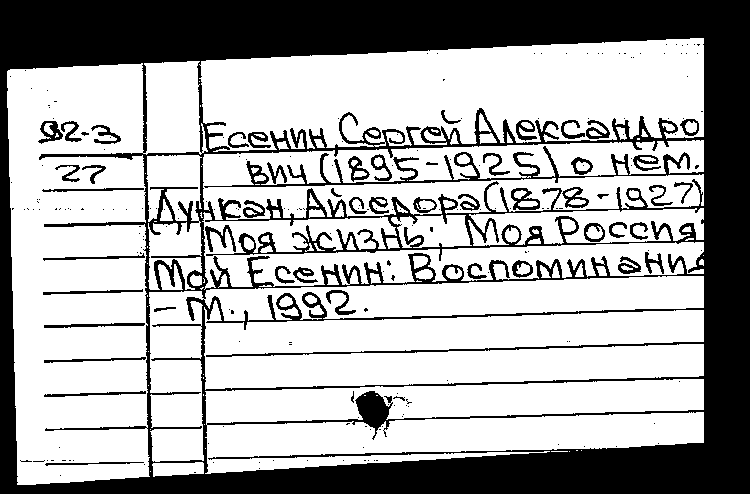 92-3 Есенин, Сергей Александро
27 вич (1895-1925) о нем.
Дункан, Айседора (1878-1927)
Моя жизнь; Моя Россия;
Мой Есенин: Воспоминания
- М., 1992.